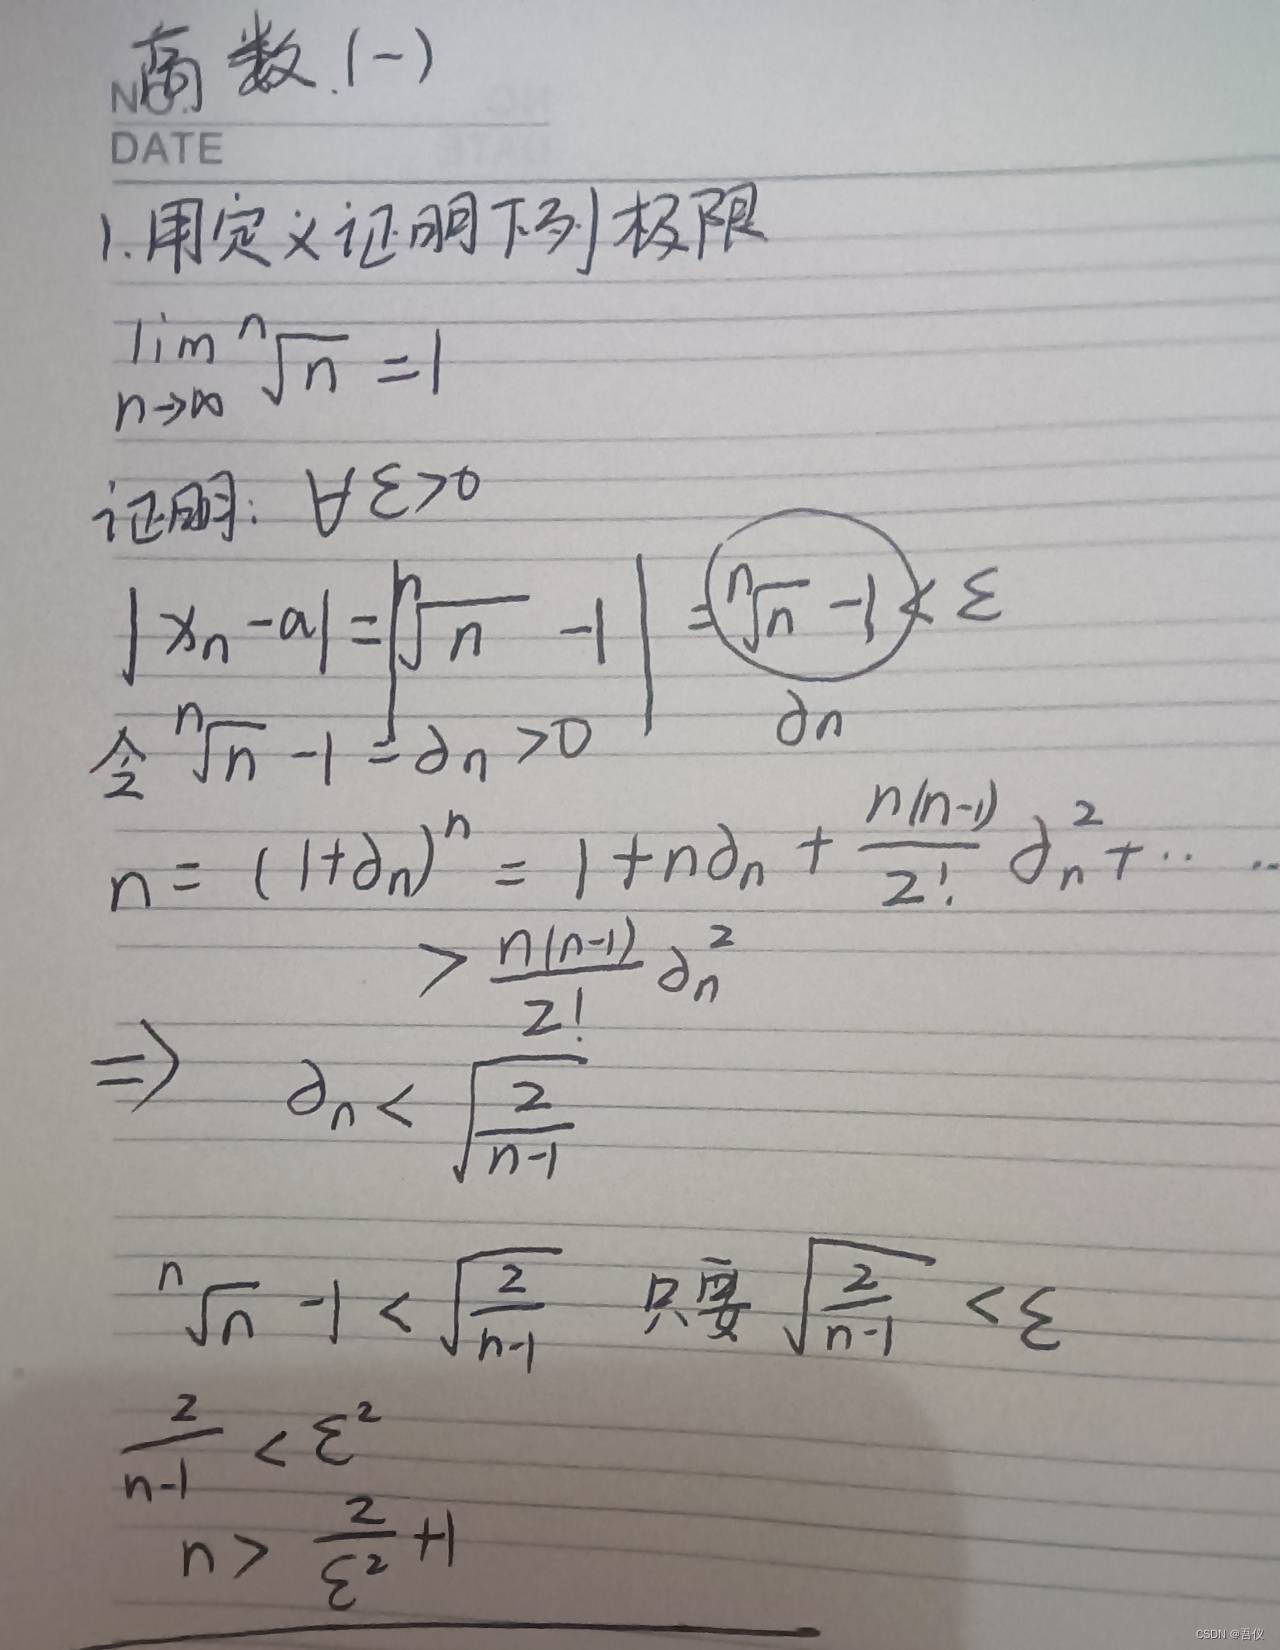 高数(一)
NO.
DATE
1.用定义证明下列极限
lim n→∞ ⁿ√n = 1
证明: ∀ε>0
|xₙ-a| = |ⁿ√n -1| = ⁿ√n -1 < ε
∂n
令 ⁿ√n -1 = ∂ₙ >0
n = (1+∂ₙ)ⁿ = 1+n∂ₙ + n(n-1)/2! ∂ₙ² + ‥ ‥
> n(n-1)/2! ∂ₙ²
⇒ ∂ₙ < √(2/(n-1))
ⁿ√n -1 < √(2/(n-1)) 只要 √(2/(n-1)) < ε
2/(n-1) < ε²
n > 2/ε² +1
CSDN @吾仪